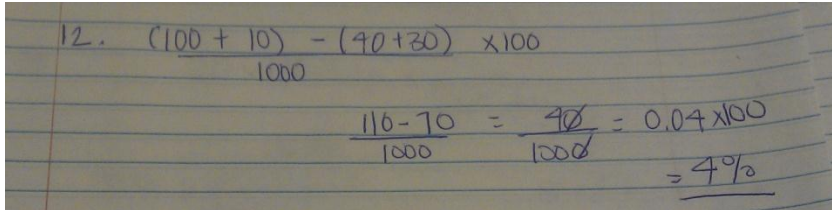 12. (100 + 10) - (40+30) x100
1000
110-70 = 40 = 0.04 x100
1000 1000
= 4%